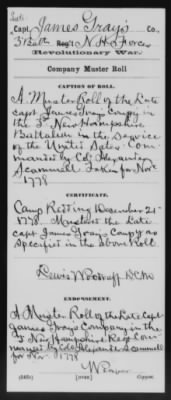 Late
Capt. James Gray's Co.,
3' Batln Reg't N. H. Forces
Revolutionary War.
Company Muster Roll
CAPTION OF ROLL.
A Muster Roll of the Late
capt James Gray Compy in
the 3' New Hampshire
Battalion in the Service
of the United States Com-
manded by Col Alexander
Scammell Taken for Novr
1778
CERTIFICATE.
Camp Redding December 21st
1778. Mustered the Late
capt James Grays Compy as
Specified in the above Roll
Lewis Woodruff DCMo
ENDORSEMENT.
A Muster Roll of the Late Capt
James Grays Company in the
3' New Hampshire Regt Com-
manded by Col Alexander Scammell
for Novr 1778
Weaver
Copyist.